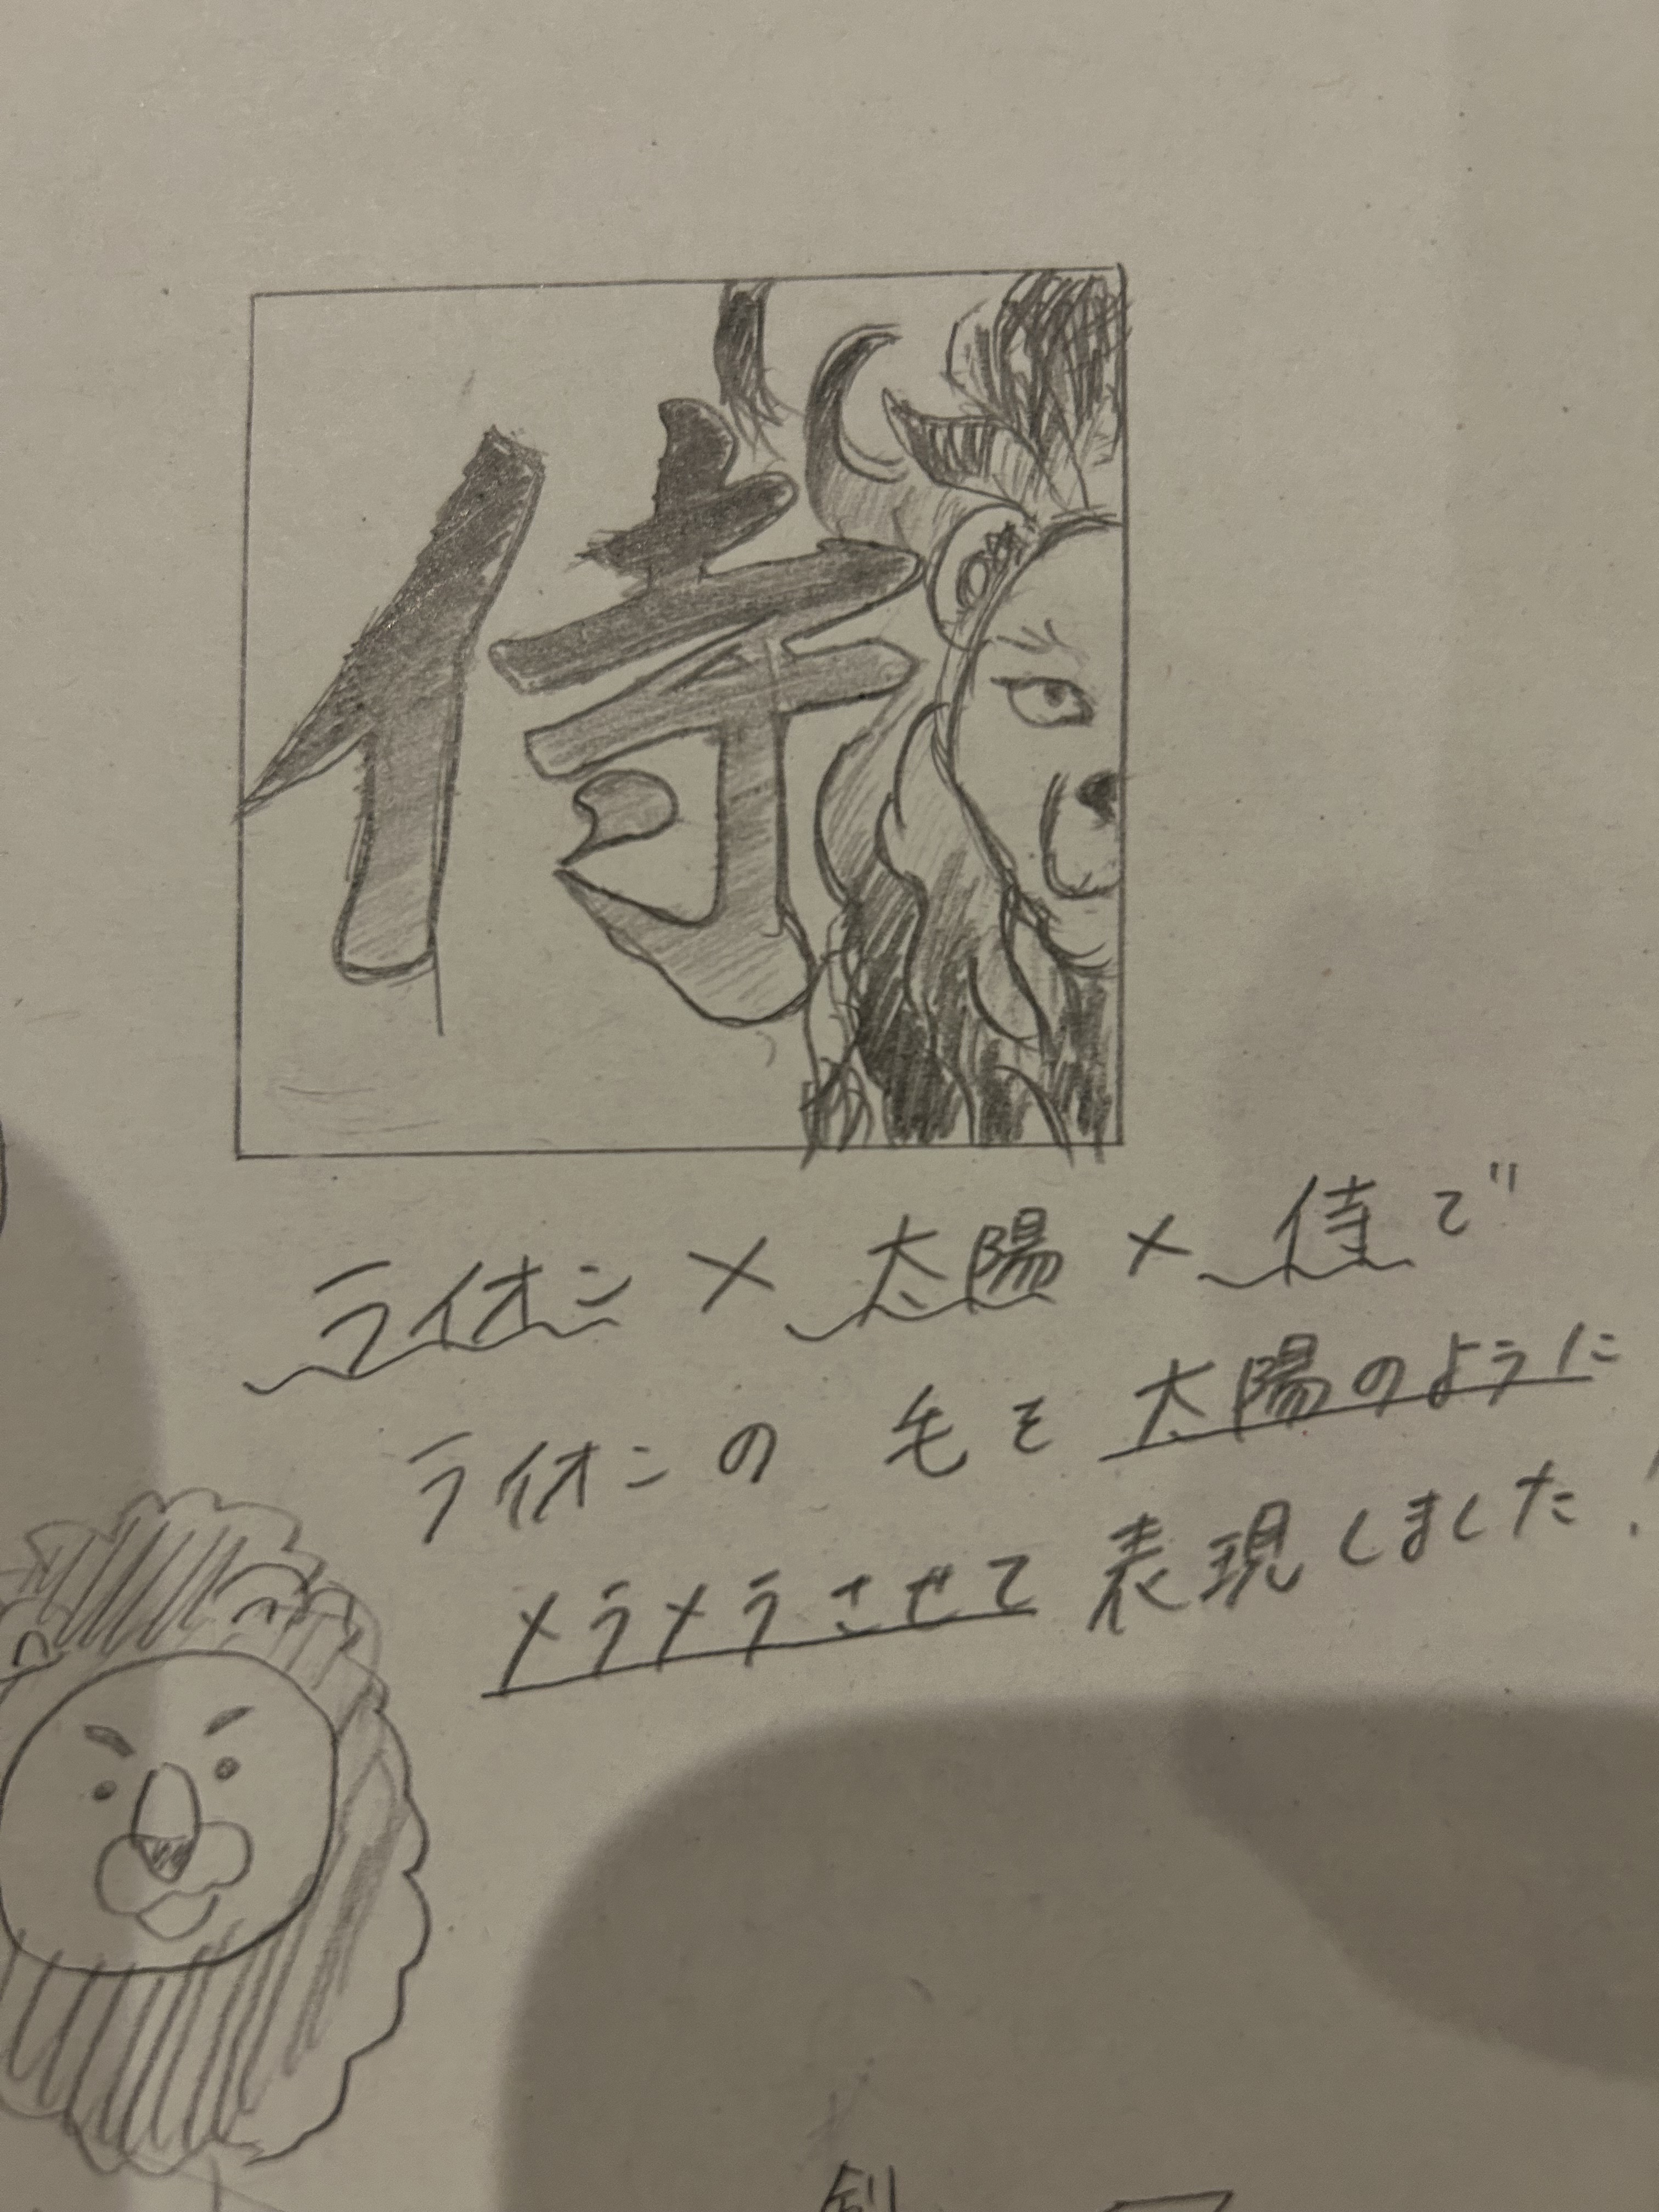 侍
ライオン × 太陽 × 侍で
ライオンの 毛を 太陽のように
メラメラさせて 表現しました!